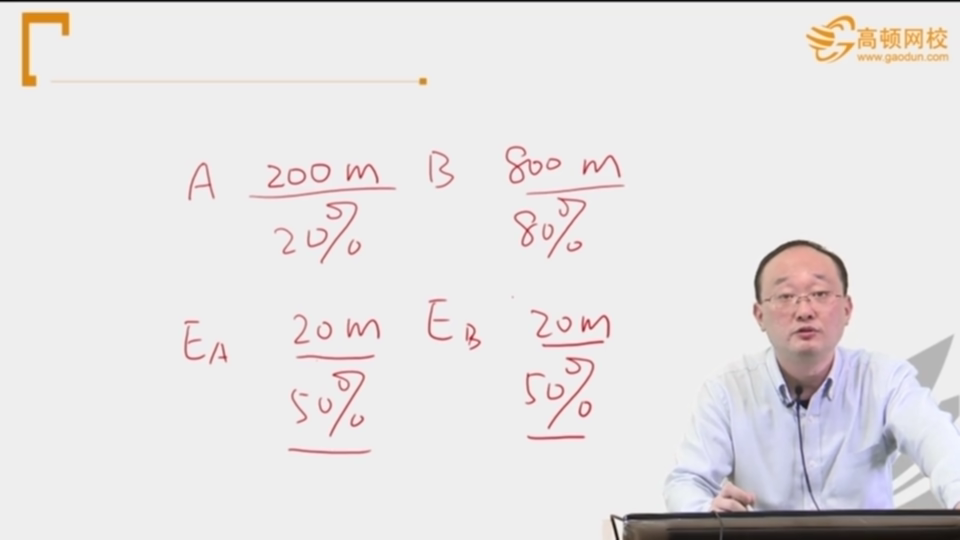 高顿网校
www.gaodun.com
A 200 m B 800 m
20% 80%
E_A 20 m E_B 20 m
50% 50%